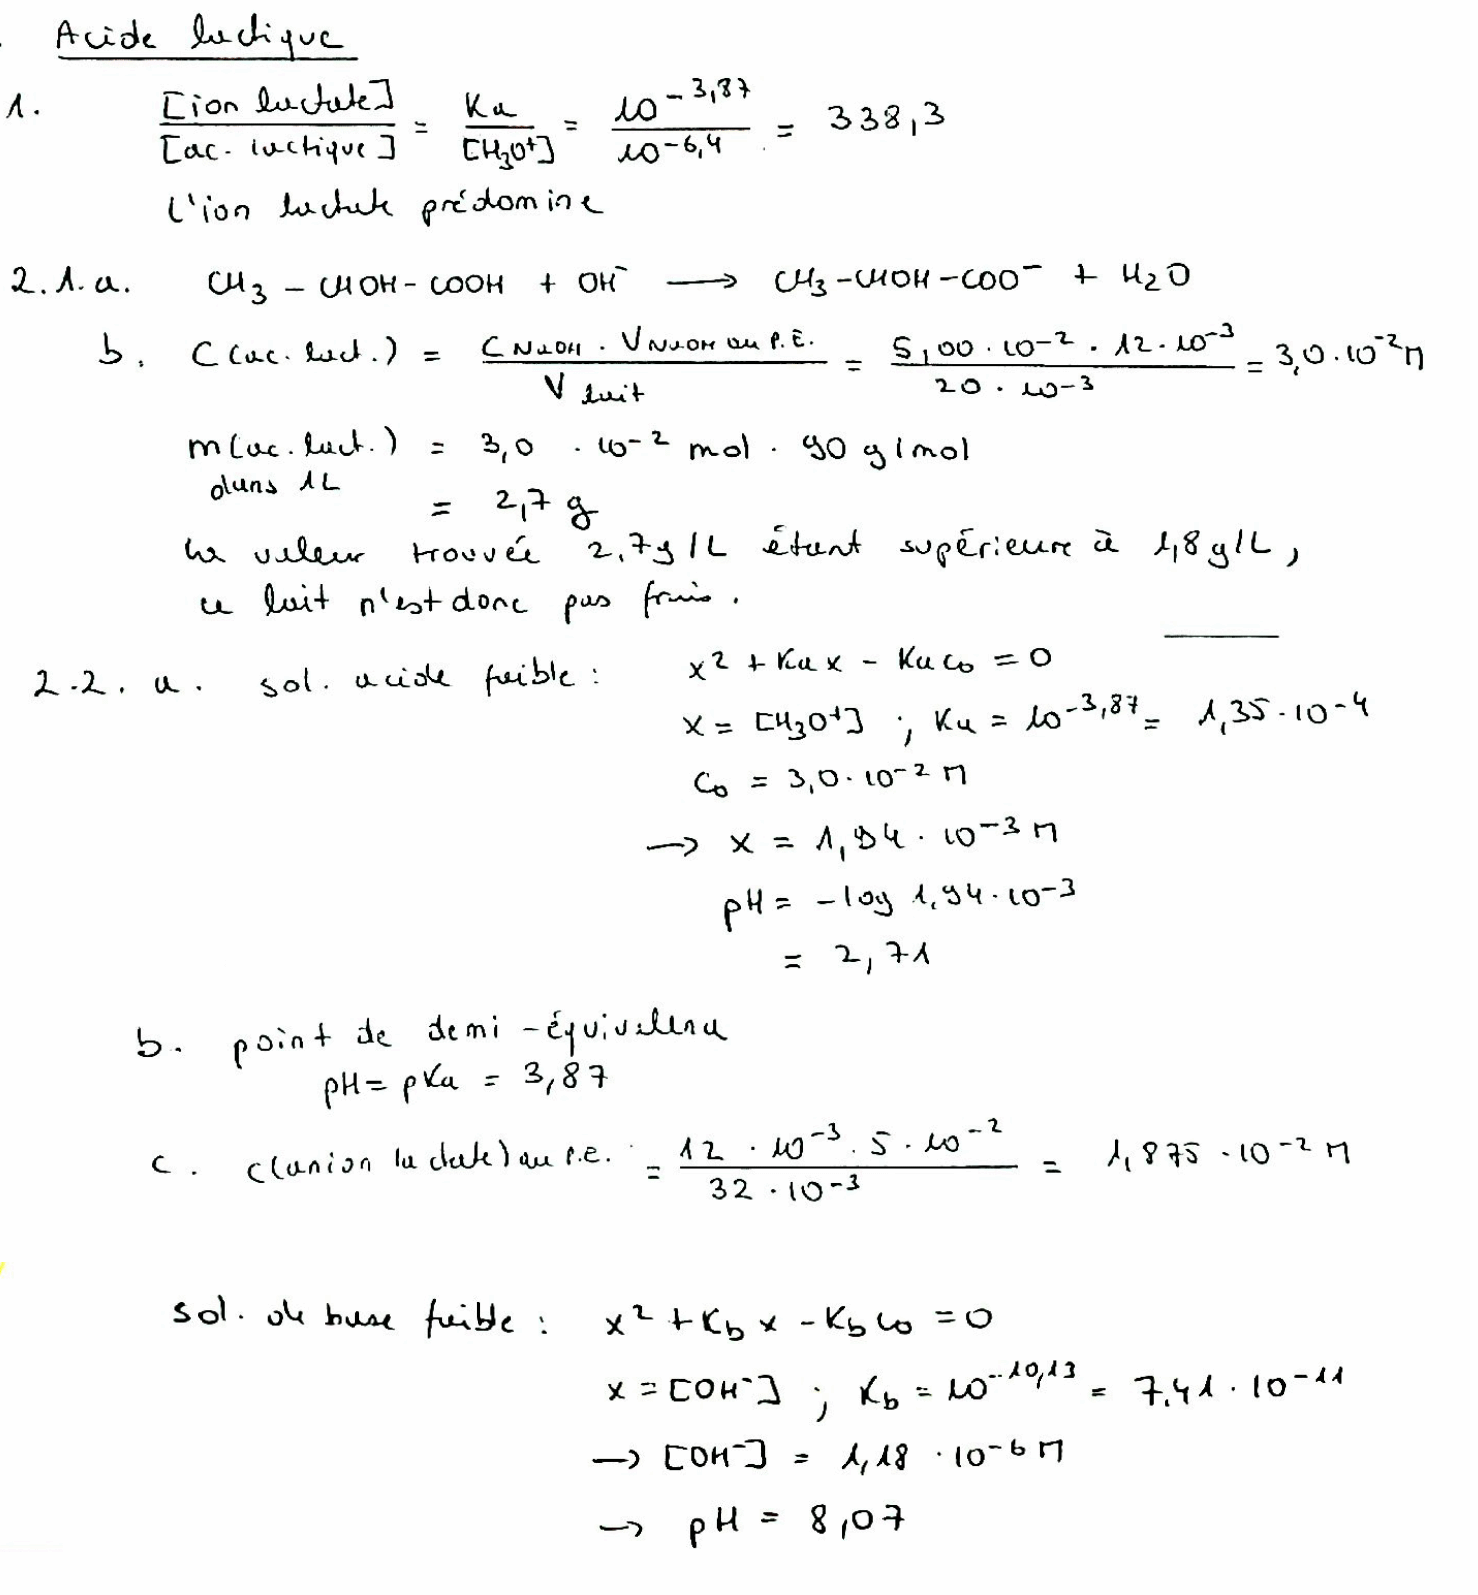 Acide lactique
1. [ion lactate] / [ac. lactique] = Ka / [H₃O⁺] = 10⁻³,⁸⁷ / 10⁻⁶,⁴ = 338,3
l'ion lactate prédomine
2.1.a. CH₃ – CHOH – COOH + OH⁻ ⟶ CH₃ – CHOH – COO⁻ + H₂O
b. C(ac. lact.) = C NaOH · V NaOH au P.E. / V lait = 5,00 · 10⁻² · 12 · 10⁻³ / 20 · 10⁻³ = 3,0 · 10⁻² M
m(ac. lact.) = 3,0 · 10⁻² mol · 90 g/mol
dans 1L
= 2,7 g
La valeur trouvée 2,7g/L étant supérieure à 1,8g/L,
ce lait n'est donc pas frais.
2.2. a. sol. acide faible : x² + Ka x – Ka c₀ = 0
x = [H₃O⁺] ; Ka = 10⁻³,⁸⁷ = 1,35 · 10⁻⁴
c₀ = 3,0 · 10⁻² M
→ x = 1,94 · 10⁻³ M
pH = – log 1,94 · 10⁻³
= 2,71
b. point de demi-équivalence
pH = pKa = 3,87
c. c(anion lactate) au P.E. = 12 · 10⁻³ · 5 · 10⁻² / 32 · 10⁻³ = 1,875 · 10⁻² M
sol. de base faible : x² + Kb x – Kb c₀ = 0
x = [OH⁻] ; Kb = 10⁻¹⁰,¹³ = 7,41 · 10⁻¹¹
→ [OH⁻] = 1,18 · 10⁻⁶ M
→ pH = 8,07